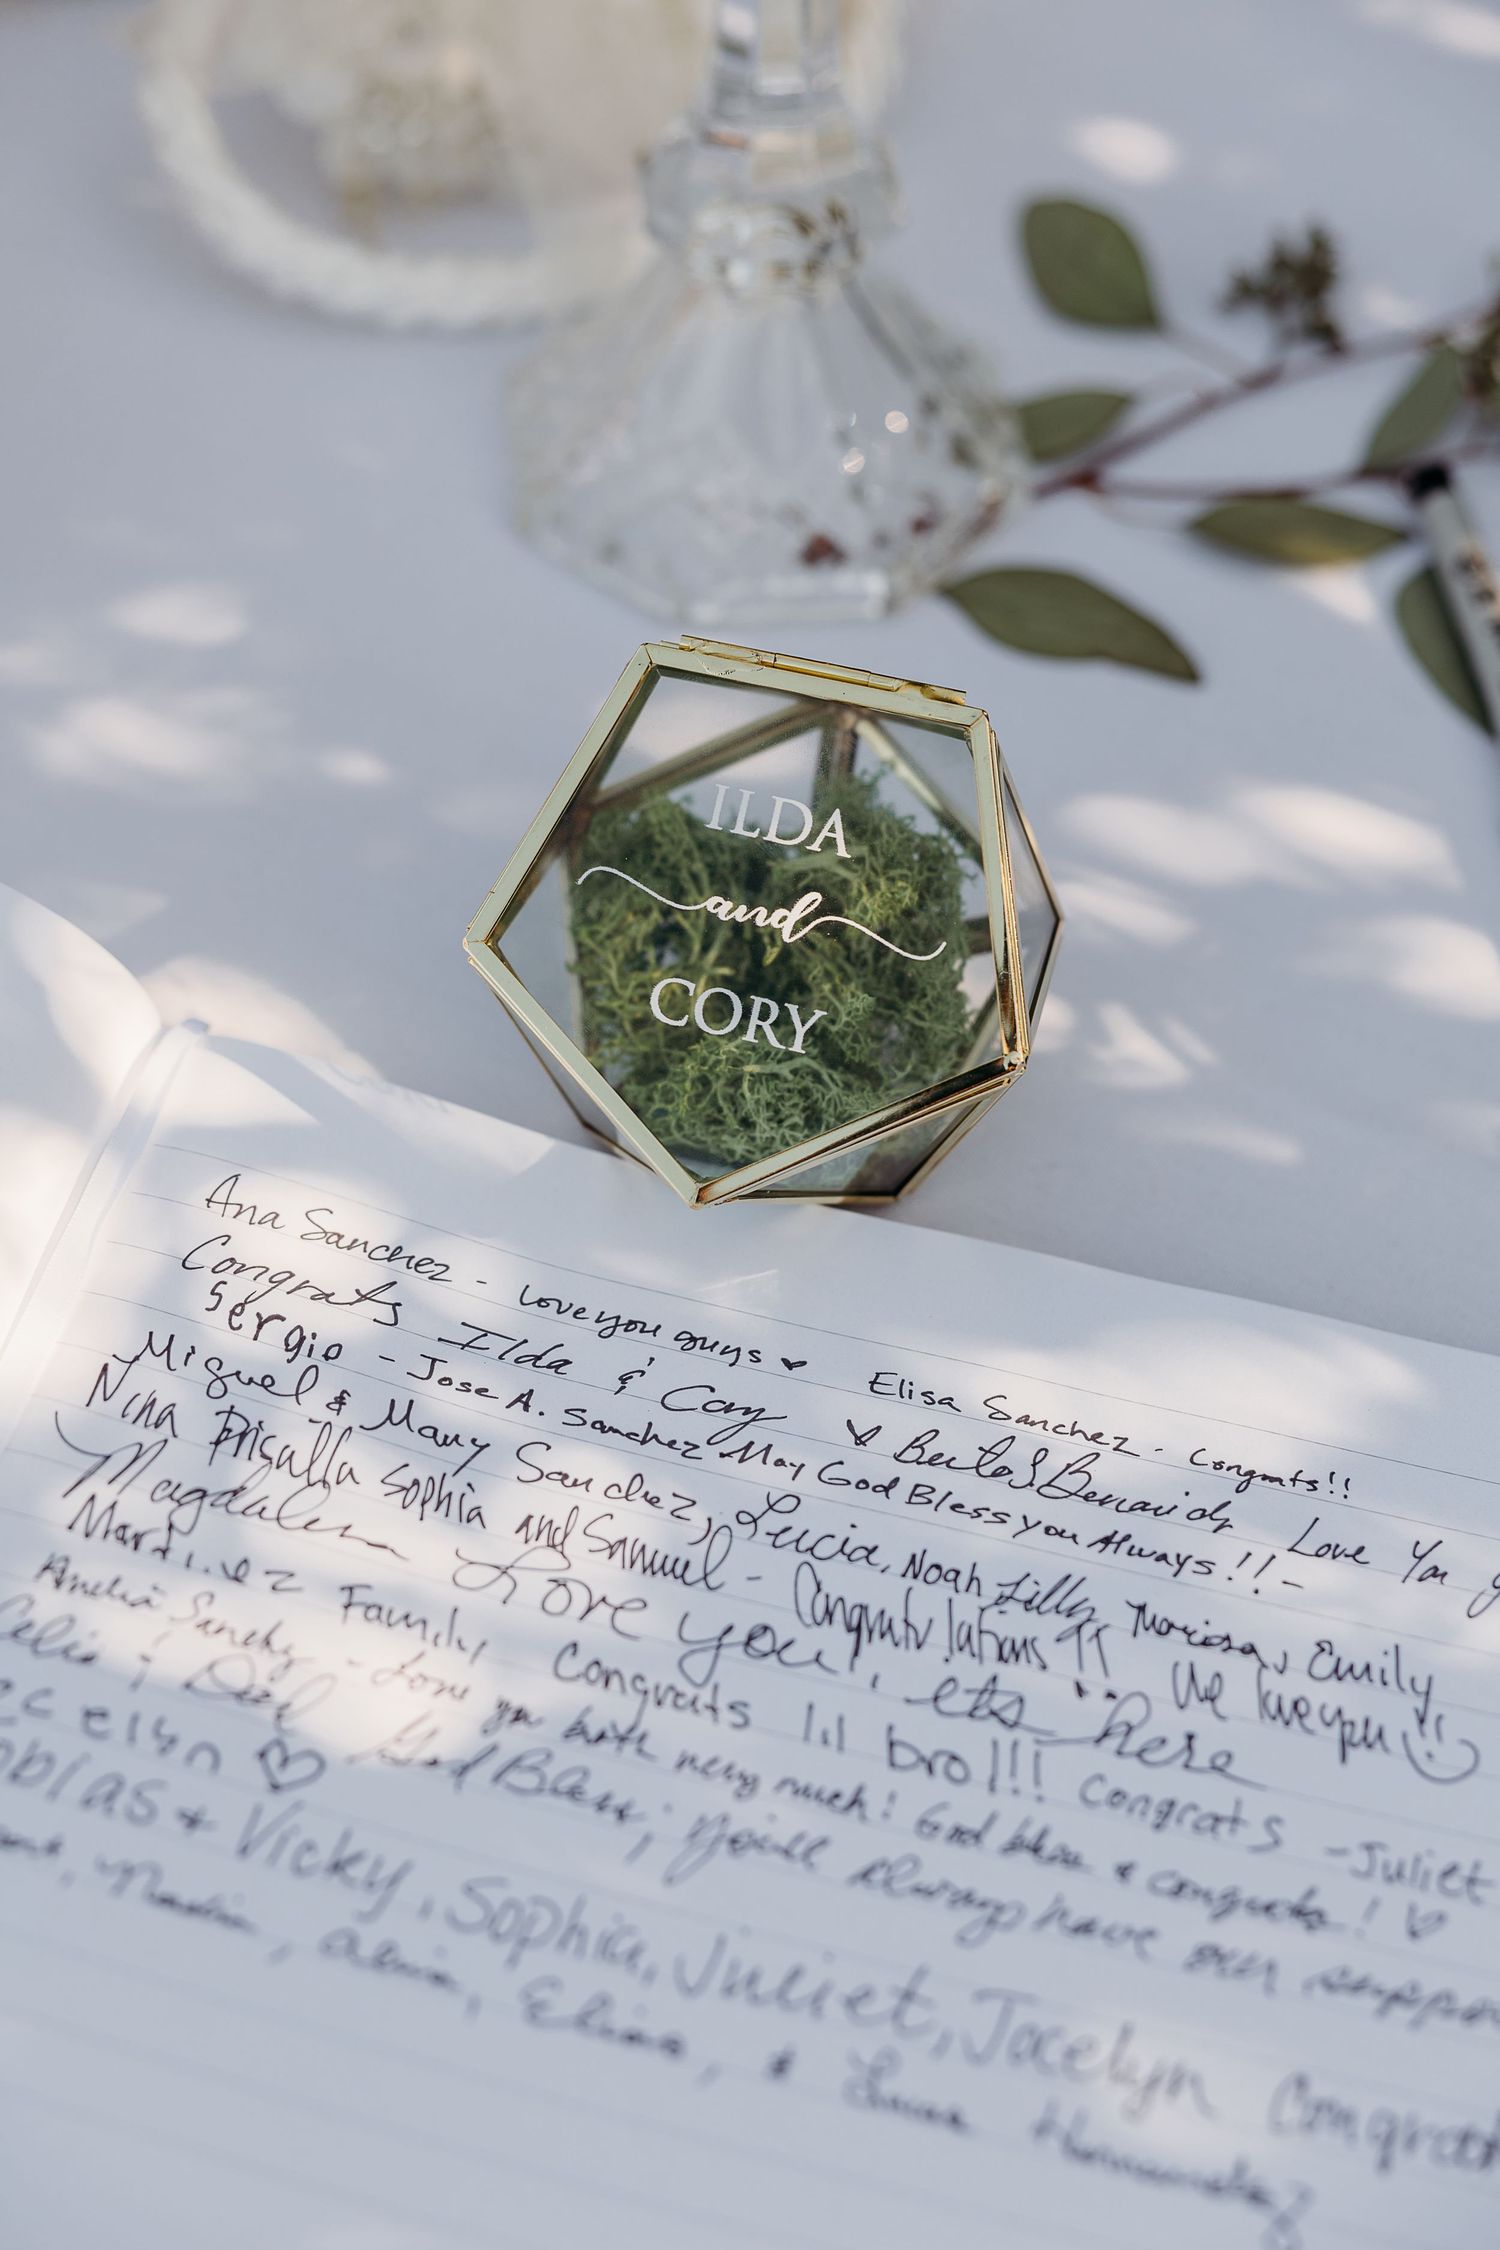 ILDA
and
CORY
Ana Sanchez - Love you guys ♥ Elisa Sanchez - Congrats!!
Congrats Ilda & Cory ♥ Love You
Sergio - Jose A. Sanchez May God Bless you Always!! -
Miguel & Mary Sanchez, Lucia, Noah Lilly, Marissa, Emily
Nina Priscilla Sophia and Samuel - Congratulations!! We love you!!
Magdalena Love you, ets here
Martinez Family Congrats lil bro!!! Congrats - Juliet
Amelia Sanchez - Love you both very much! God bless & congrats! ♡
Celis & Dad God Bless, you'll always have our
♡
& Vicky, Sophia, Juliet, Jocelyn
, Elias, &